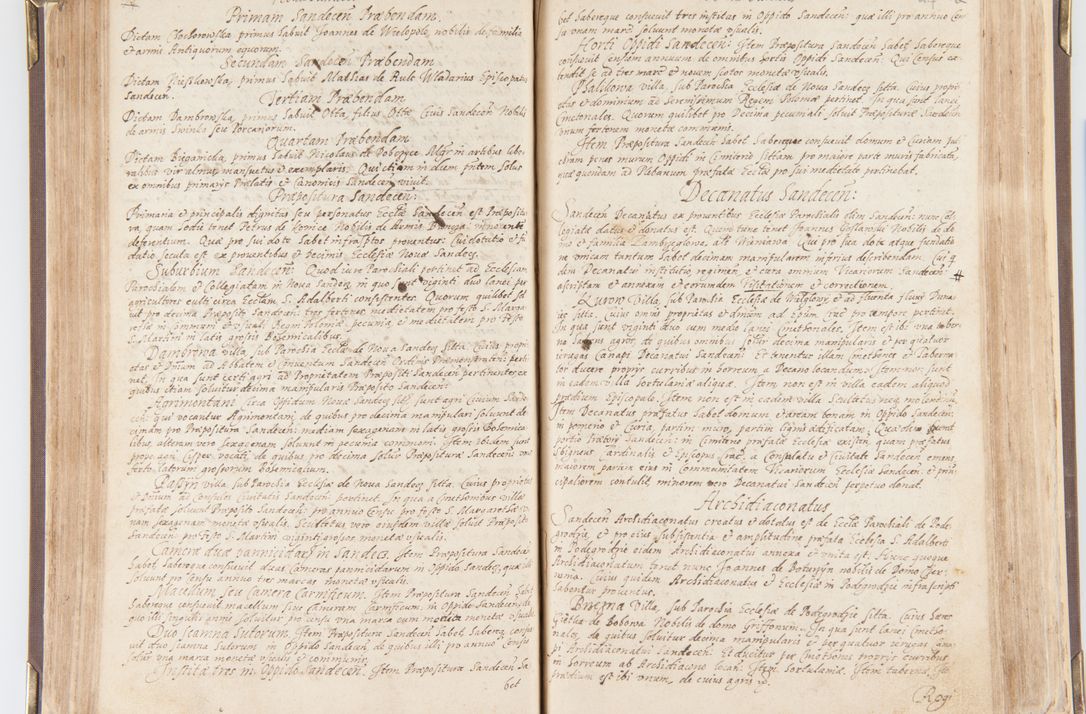 Primam Sandecen̄ Præbendam.
Dictam primus habuit Joannes de Wielopole, nobilis de familia
et armis Antiquorum equorum.
Secundam Sandecen̄ Præbendam
Dictam primus habuit Mathias de Episcopatus
Sandecen̄.
Tertiam Præbendam
Dictam Dambrowska, primus habuit Otta, filius Ottæ Civis Sandecen̄ Nobilis
de armis Swinka seu Porcanorum.
Quartam Præbendam
Dictam primus habuit Nicolaus de Mgr̄ in artibus libe-
ralibus vir almus, mansuetus et exemplaris. Qui etiam in diem pn̄tem solus
ex omnibus primarys Prælatis et Canonicis Sandecen̄ vivit.
Præpositura Sandecen̄:
Primaria et principalis dignitas seu personatus Ecclæ Sandecen̄ est Præpositu-
ra, quam hodie tenet Petrus de Nobilis de Armis
deferentium. Quæ pro sui dote habet infrascr̄ptos proventus: Cui dotatio et fun-
datio secuta est ex proventibus et decimis Ecclesiæ Novæ Sandecz.
Suburbium Sandecen̄: Quod iure Parochiali pertinet ad Ecclesiam
Parochialem et Collegiatam in Nova Sandecz, in quo sunt viginti duo lanei per
agricultores culti circa Ecclām S. Adalberti consistentes. Quorum quilibet sol-
uit pro decima Præposito Sandecen̄: tres fertones medietatem pro festo S. Marga-
rethæ in communi et usuali Regni Poloniæ pecunia, et medietatem pro Festo
S. Martini in latis grossis Bohemicalibus.
Dambrowa villa sub Parochia Ecclæ de Nova Sandecz sitta. Cuius propri-
etas et Dnium ad Abbatem et Conventum Sandecen̄ Ordinis Præmonstraten̄: perti-
net. In qua sunt certi agri ad Proprietatem Præpositi Sandecen̄ pertinentes ex
quibus etiam solvitur decima manipularis Præposito Sandecen̄:
Agrimontani circa Oppidum Nova Sandecz sunt agri civium Sande-
cen̄: qui vocantur Agrimontani, de quibus pro decima manipulari solvunt de-
cimam pro Præpositura Sandecen̄: mediam sexagenam in latis grossis Bohemica-
libus, alteram vero sexagenam solvunt in pecunia communi. Item ibidem sunt
prope agri vocati, de quibus pro decima solvit Præpositura Sandecen̄ unum
ferto latorum grossorum Bohemicalium.
villa sub Parochia Ecclesiæ de Nova Sandecz sitta. Cuius proprietas
et Dnium ad Consules Civitatis Sandecen̄ pertinet. In qua a Cmethonibus villæ
præfatæ solvunt Præposito Sandecen̄: pro annuo Censu pro festo S. Margarethæ u-
nam sexagenam monetæ usualis. Scultetus vero eiusdem villæ solvit Præposito
Sandecen̄ pro festo S. Martini viginti grossos monetæ usualis.
Cameræ duæ pannicidarū in Sandecz. Item Præpositura Sandecen̄
habet habereque consuevit duas Cameras pannicidarum in Oppido Sandecz, quæ illi
solvunt pro Censu annuo tres marcas monetæ usualis.
Macellum seu Camera Carnificum. Item Præpositura Sandecen̄ habet
habereque consuevit macellum sive Cameram Carnificum, in Oppido Sandecen̄ de
quo illi singulis annis solvitur pro censu una marca cum media monetæ usualis.
Duo scamna Sutorum. Item Præpositura Sandecen̄ habet habere consue-
vit duo scamna Sutorum in Oppido Sandecen̄ de quibus illi pro annuo Censu
solvitur una marca monetæ usualis et communis.
Institæ tres in Oppido Sandecen̄: Item Præpositura Sandecen̄ ha-
bet
bet habereque consuevit tres institas in Oppido Sandecen̄: quæ illi pro annuo Cen-
su unam marc̄ solvunt monetæ usualis.
Horti Oppidi Sandecen̄: Item Præpositura Sandecen̄ habet habereque
consuevit censum annuum de omnibus hortis Oppidi Sandecen̄. Qui Census ex-
tendit se ad tres marc̄ et novem scotos monetæ usualis.
villa, sub Parochia Ecclesiæ de Nova Sandecz sitta. Cuius propri-
etas et dominium ad Serenissimum Regem Poloniæ pertinet. In qua sunt lanei
Cmetonales. Quorum quilibet pro Decima pecuniali solvit Præposituræ Sandecen̄
unum fertonem monetæ communis.
Item Præpositura Sandecen̄ habet habereque consuevit domum et Curiam pul-
chram penes murum Oppidi in Cimiterio sittam pro maiore parte muris fabricata,
quæ quondam ad Plebanum præfatæ Ecclæ pro sui medietate pertinebat.
Decanatus Sandecen̄:
Sandecen̄ Decanatus ex proventibus Ecclesiæ Parochialis olim Sandecen̄: nunc Col-
legiatæ datus et donatus est. Quem tunc tenet Joannes Nobilis de do-
mo et familia de Wisniowa Qui pro sua dote atque fundatio-
ne unicam tantum habet decimam manipularem inferius describendam. Cui qui-
dem Decanatui institutio regimen, et cura omnium Vicariorum Sandecen̄
ascriptam et annexam et eorundem Visitationem et correctionem. #
Villa, sub Parochia Ecclesiæ de et ad fluenta fluvy Duna-
iec sitta. Cuius omnis proprietas et dnium ad Ep̄um Crac̄ pro tempore pertinet.
In qua sunt viginti duo cum medio lanei Cmethonales. Item est ibi una taber-
na habens agros, de quibus omnibus solvitur decima manipularis et per quatuor
Canapi Decanatui Sandecen̄ Et tenentur illam Cmethones et taberna-
tor ducere propriis curribus in horreum a Decano locandum. Item non sunt
in eadem villa hortulaniæ aliquæ. Item non est in villa eadem aliquod
prædium Episcopale. Item non est in eadem villa Scultetus neque molendinum.
Item Decanatus præfatus habet domum et aream bonam in Oppido Sandecen̄:
in pomerio et Curia, partim muro, partim lignis ædificatam. Quædam
portio Sandecen̄: in Cimiterio præfatæ Ecclesiæ existen̄ quam præfatus
Sbigneus Cardinalis et Episcopus Crac̄: a Consulatu et Civitate Sandecen̄ emens,
maiorem partem eius in Communitatem Vicariorum Ecclesiæ Sandecen̄ et prin-
cipaliorem contulit minorem vero Decanatui Sandecen̄ perpetuo donat.
Archidiaconatus
Sandecen̄ Archidiaconatus creatus et dotatus est de Eccla Parochiali de Pode-
grodzie, et pro eius subsistentia et amplitudine præfata Ecclesia S. Adalberti
in Podegrodzie eidem Archidiaconatui annexa et unita est. Hunc quoque
Archidiaconatum tenet nunc Joannes de nobilis de Domo
Cuius quidem Archidiaconatus et Ecclesiæ in Podegrodzie infrascripti
habentur proventus.
Brzezna Villa, sub Parochia Ecclesiæ de Podegrodzie sitta. Cuius hæres
de Bobowa Nobilis de domo Griffonum. In qua sunt lanei Cmetho-
nales, de quibus solvitur decima manipularis et per quatuor cana-
pi Archidiaconatui Sandecen̄: Et ducitur per Cmethones propriis curribus
in horreum ab Archidiacono locan̄: Item hortulaniæ. Item taberna. Item
prædium est ibi unum, de cuius agris
Rogi